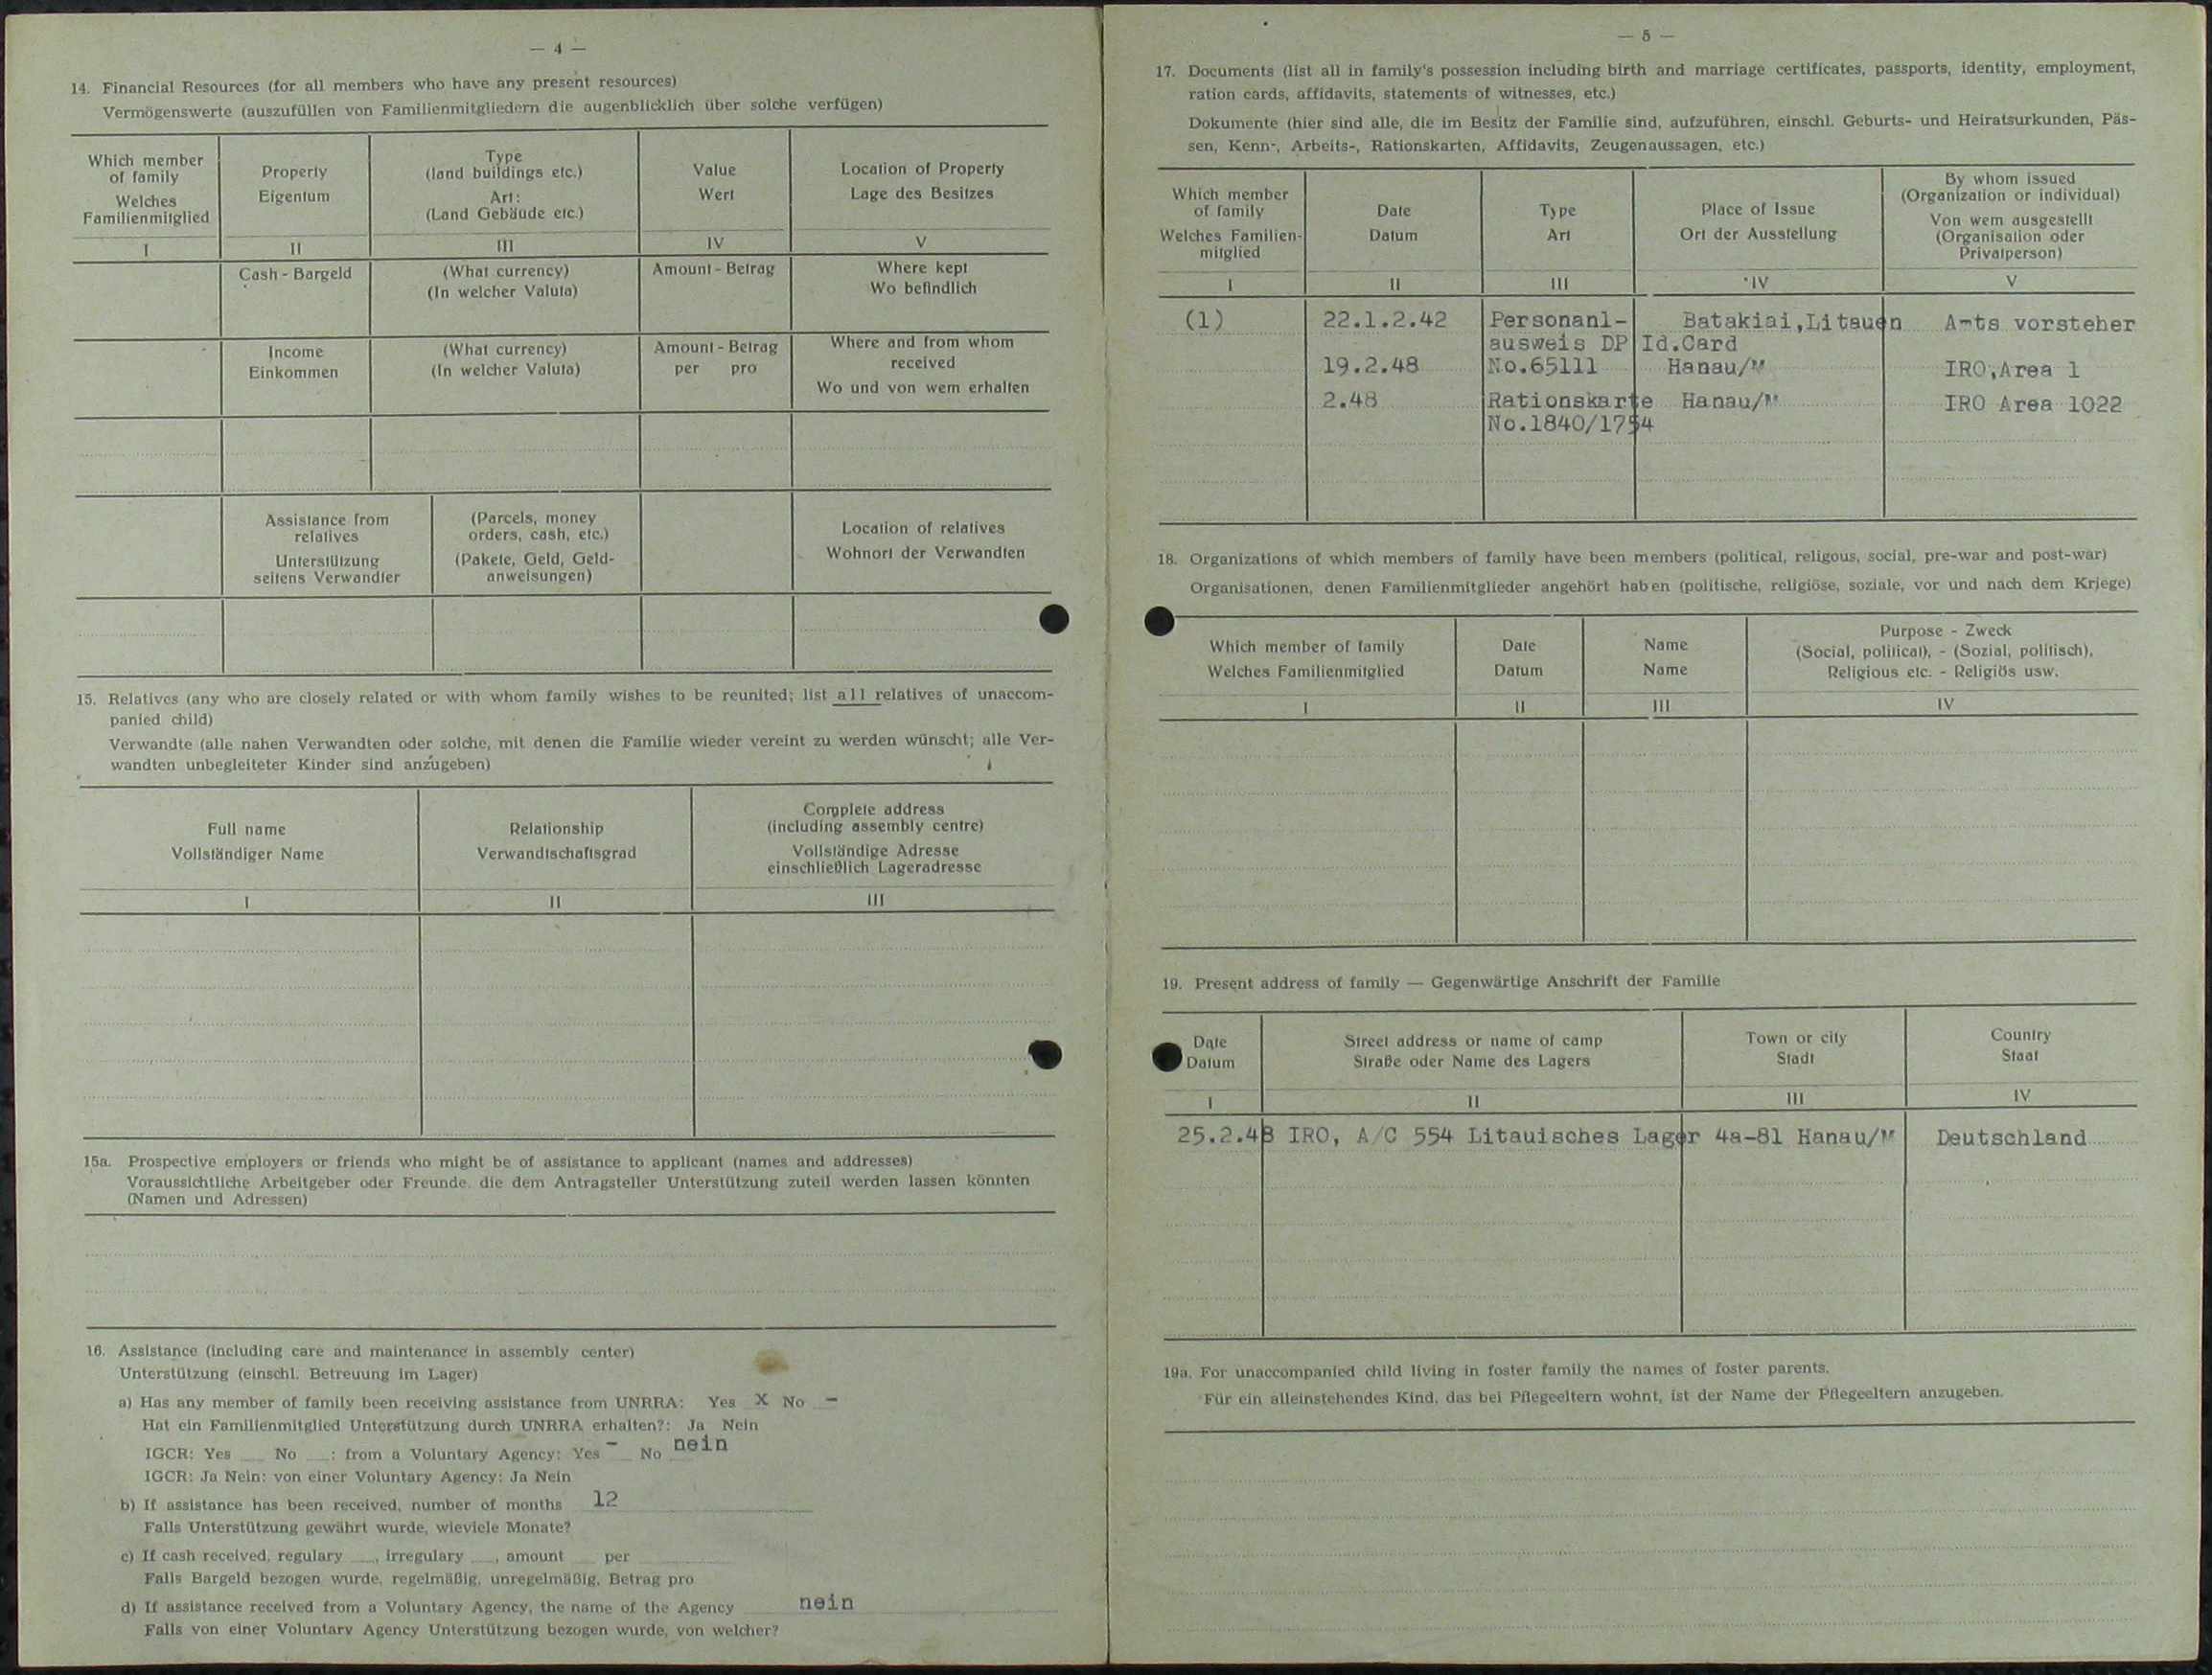 — 4 —
14. Financial Resources (for all members who have any present resources)
Vermögenswerte (auszufüllen von Familienmitgliedern die augenblicklich über solche verfügen)
Which member of family
Welches Familienmitglied
Property
Eigentum
Type (land buildings etc.)
Art: (Land Gebäude etc.)
Value
Wert
Location of Property
Lage des Besitzes
I II III IV V
Cash - Bargeld
(What currency)
(In welcher Valuta)
Amount - Betrag
Where kept
Wo befindlich
Income
Einkommen
(What currency)
(In welcher Valuta)
Amount - Betrag
per pro
Where and from whom received
Wo und von wem erhalten
Assistance from relatives
Unterstützung seitens Verwandter
(Parcels, money orders, cash, etc.)
(Pakete, Geld, Geld-
anweisungen)
Location of relatives
Wohnort der Verwandten
15. Relatives (any who are closely related or with whom family wishes to be reunited; list all relatives of unaccom-
panied child)
Verwandte (alle nahen Verwandten oder solche, mit denen die Familie wieder vereint zu werden wünscht; alle Ver-
wandten unbegleiteter Kinder sind anzugeben)
Full name
Vollständiger Name
Relationship
Verwandtschaftsgrad
Complete address
(including assembly centre)
Vollständige Adresse
einschließlich Lageradresse
I II III
15a. Prospective employers or friends who might be of assistance to applicant (names and addresses)
Voraussichtliche Arbeitgeber oder Freunde. die dem Antragsteller Unterstützung zuteil werden lassen könnten
(Namen und Adressen)
16. Assistance (including care and maintenance in assembly center)
Unterstützung (einschl. Betreuung im Lager)
a) Has any member of family been receiving assistance from UNRRA: Yes X No -
Hat ein Familienmitglied Unterstützung durch UNRRA erhalten?: Ja Nein
IGCR: Yes No : from a Voluntary Agency: Yes - No nein
IGCR: Ja Nein: von einer Voluntary Agency: Ja Nein
b) If assistance has been received, number of months 12
Falls Unterstützung gewährt wurde, wieviele Monate?
c) If cash received, regulary , irregulary , amount per
Falls Bargeld bezogen wurde, regelmäßig, unregelmäßig, Betrag pro
d) If assistance received from a Voluntary Agency, the name of the Agency nein
Falls von einer Voluntary Agency Unterstützung bezogen wurde, von welcher?
— 5 —
17. Documents (list all in family's possession including birth and marriage certificates, passports, identity, employment,
ration cards, affidavits, statements of witnesses, etc.)
Dokumente (hier sind alle, die im Besitz der Familie sind, aufzuführen, einschl. Geburts- und Heiratsurkunden, Päs-
sen, Kenn-, Arbeits-, Rationskarten, Affidavits, Zeugenaussagen, etc.)
Which member of family
Welches Familien-
mitglied
Date
Datum
Type
Art
Place of Issue
Ort der Ausstellung
By whom issued
(Organization or individual)
Von wem ausgestellt
(Organisation oder
Privatperson)
I II III IV V
(1) 22.1.2.42 Personanl- Batakiai,Litauen A-ts vorsteher
ausweis DP Id.Card
19.2.48 No.65111 Hanau/M IRO,Area 1
2.48 Rationskarte Hanau/M IRO Area 1022
No.1840/1754
18. Organizations of which members of family have been members (political, religous, social, pre-war and post-war)
Organisationen, denen Familienmitglieder angehört haben (politische, religiöse, soziale, vor und nach dem Kriege)
Which member of family
Welches Familienmitglied
Date
Datum
Name
Name
Purpose - Zweck
(Social, political), - (Sozial, politisch),
Religious etc. - Religiös usw.
I II III IV
19. Present address of family — Gegenwärtige Anschrift der Familie
Date
Datum
Street address or name of camp
Straße oder Name des Lagers
Town or city
Stadt
Country
Staat
I II III IV
25.2.48 IRO, A/C 554 Litauisches Lager 4a-81 Hanau/M Deutschland
19a. For unaccompanied child living in foster family the names of foster parents.
Für ein alleinstehendes Kind, das bei Pflegeeltern wohnt, ist der Name der Pflegeeltern anzugeben.